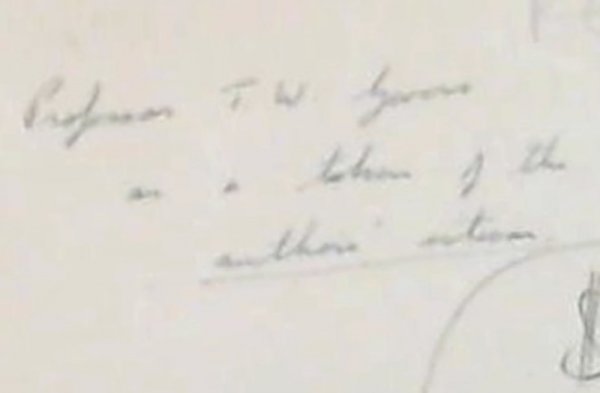 Professor T. W.
as a token of the
authors' esteem